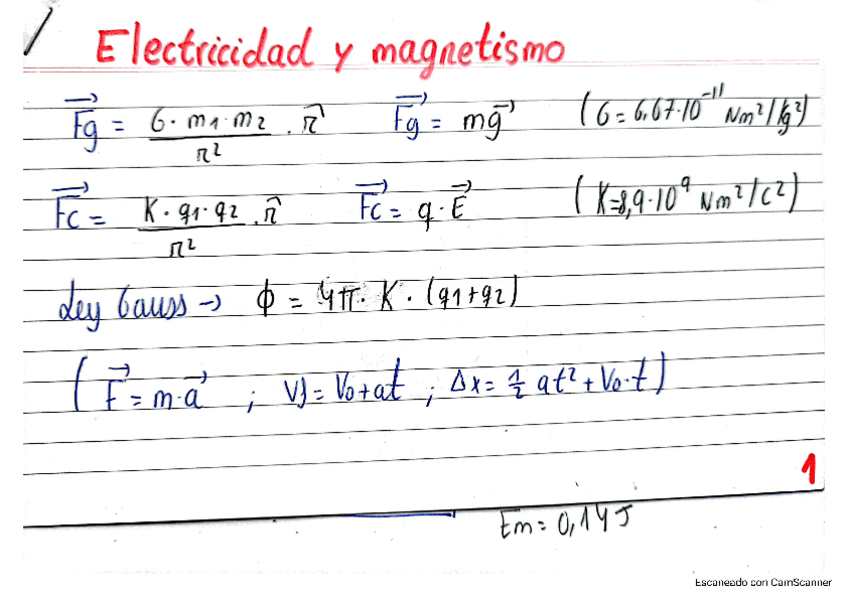 Electricidad y magnetismo
$\vec{Fg} = \frac{G \cdot m_1 \cdot m_2}{r^2} \cdot \vec{r}$ $\vec{Fg} = m\vec{g}$ (G = 6,67·10⁻¹¹ Nm²/kg²)
$\vec{Fc} = \frac{K \cdot q_1 \cdot q_2}{r^2} \cdot \vec{r}$ $\vec{Fc} = q \cdot \vec{E}$ (K=8,9·10⁹ Nm²/C²)
Ley Gauss → ϕ = 4π · K · (q1+q2)
( $\vec{F} = m \cdot \vec{a}$ ; Vf = V₀+at ; Δx = ½ at² + V₀·t )
1
Em = 0,14J
Escaneado con CamScanner